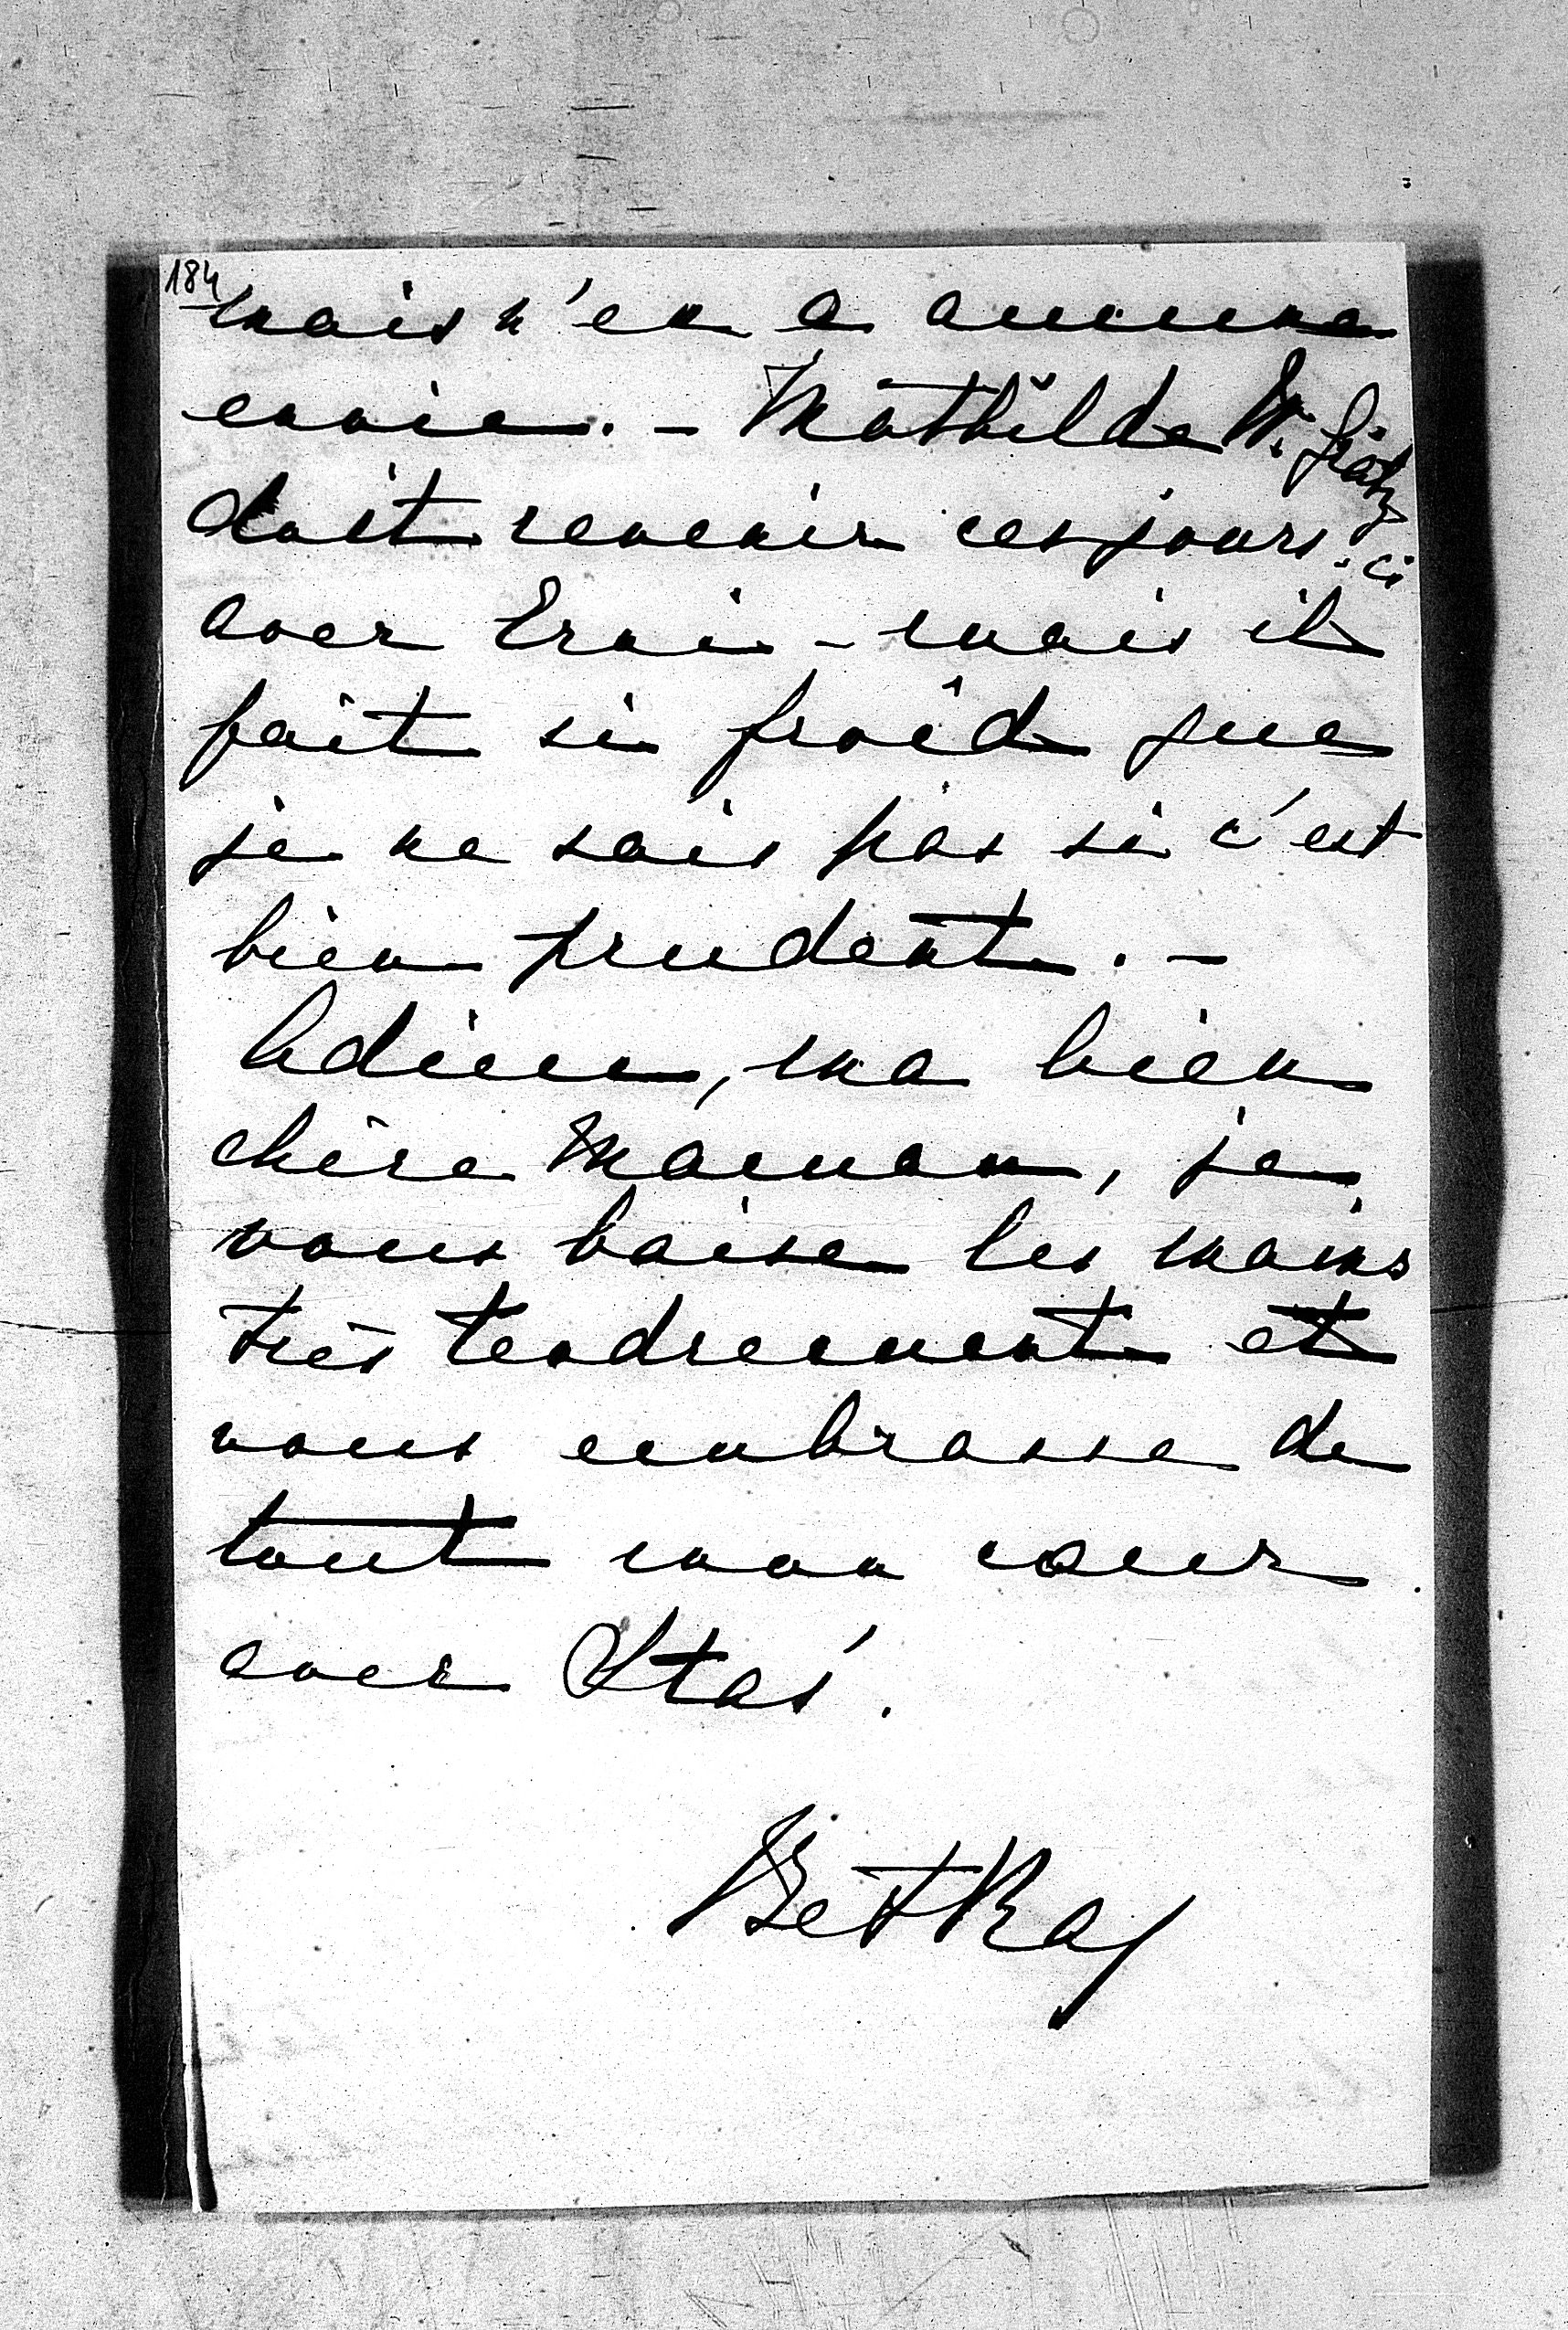 184
mais n'en a aucune
envie. - Mathilde W. Grätz
doit revenir ces jours-ci
avec Erni - mais il
fait si froid que
je ne sais pas si c'est
bien prudent. -
Adieu, ma bien
chère Maman, je
vous baise les mains
très tendrement et
vous embrasse de
tout mon cœur
avec Staś.
BetKa